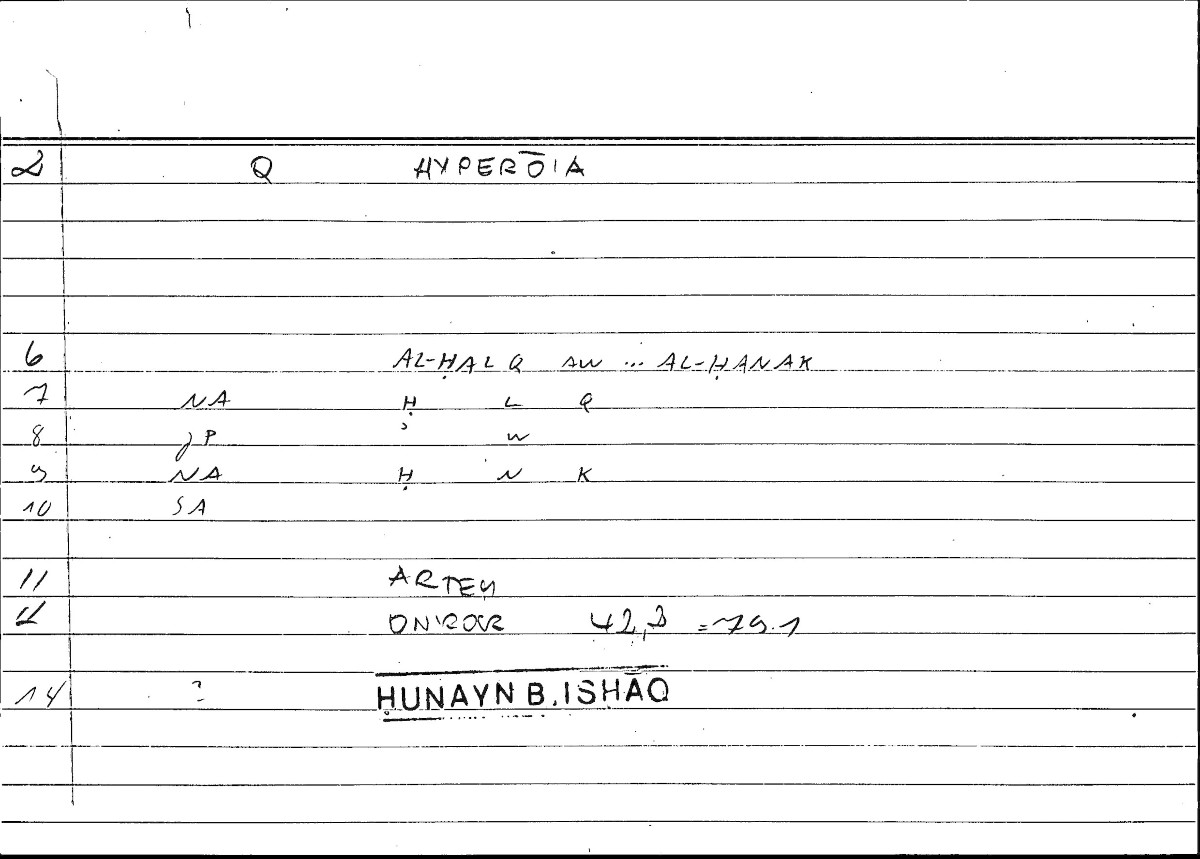 2 Q HYPERŌIA
6 AL-ḤALQ AW ... AL-ḤANAK
7 NA Ḥ L Q
8 JP ʾ W
9 NA Ḥ N K
10 SA
11 ARTEM
12 ONIROCR 42,3 = 79.1
14 ? ḤUNAYN B. ISḤĀQ